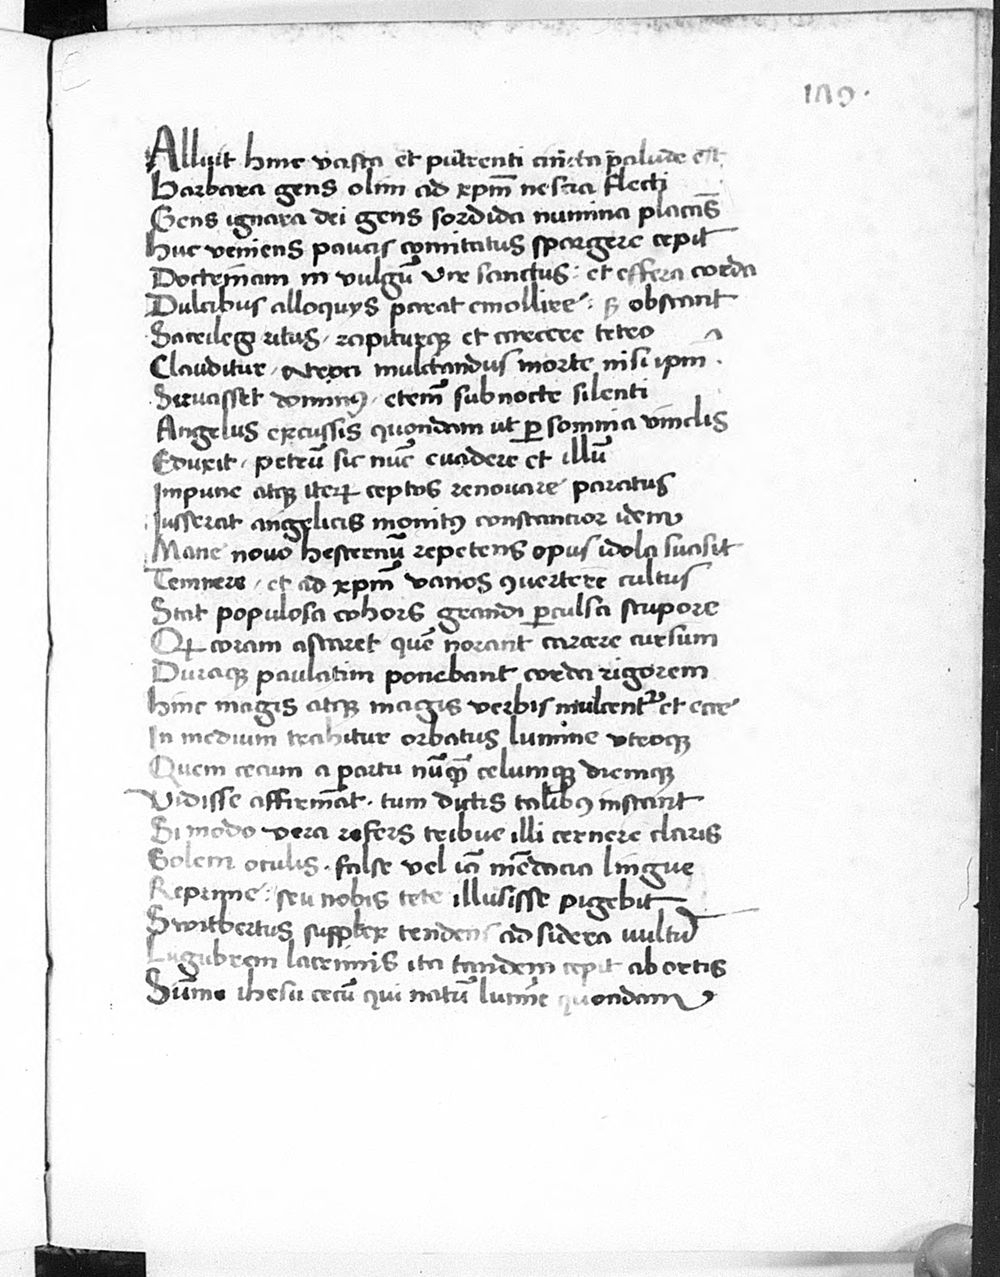 189.
Alluit hinc vasta et putrenti amicta palude est
Barbara gens olim ad xpm̄ nescia flecti
Gens ignara dei gens sordida numina placās
Huc veniens paucis comitatus spargere cepit
Doctrinam in vulgū vir sanctus : et effera corda
Dulcibus alloquys parat emollire : sꝫ obstant
Sacrileg ritus, rapiturqꝫ et carcere tetro
Clauditur, mulctandus morte nisi ipm̄ .
Servasset dominꝰ, etem̄ sub nocte silenti
Angelus excussis quondam ut ꝑ somnia vinclis
Eduxit, petrū sic nūc euadere et illū
Impune atqꝫ iteꝝ ceptos renouare paratus
Iusserat angelicis monitꝰ constancior idem
Mane novo hesternū repetens opus idola suasit
Temnere, et ad xpm̄ vanos ꝯuertere cultus
Stat populosa cohors grandi ꝑculsa stupore
Qꝫ coram astaret quē norant carcere cursum
Duraqꝫ paulatim ponebant corda rigorem
hinc magis atqꝫ magis verbis mulcentᷣ et ecce
In medium trahitur orbatus lumine utroqꝫ
Quem cecum a partu nūqᷓ celumqꝫ diemqꝫ
Vidisse affirmāt . tum dictis talibꝰ instant
Si modo vera refers tribue illi cernere claris
Solem oculis . false vel iā mēdacia lingue
Reprime : seu nobis tete illusisse pigebit
Switbertus supplex tendens ad sidera uultū
Lugubrem lacrimis ita tandem cepit abortis
Sūme ihesu cecū qui natū lumīe quondam